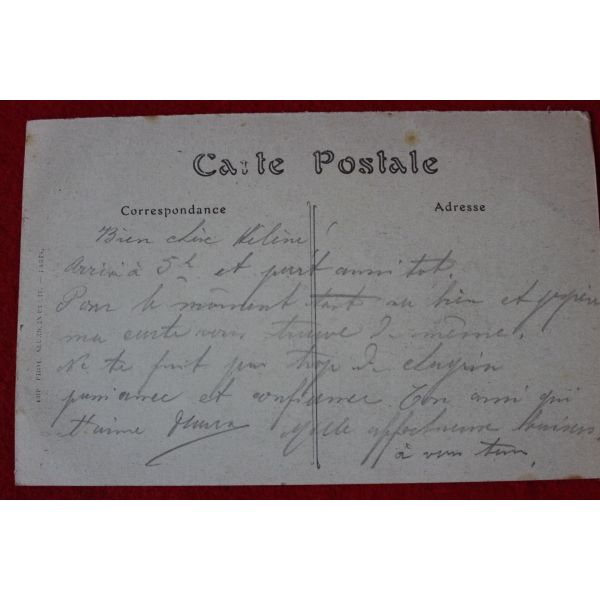 Carte Postale
Correspondance
Adresse
Bien chère Hélène!
Arrivé à 5h et part aussitot.
Pour le moment tout au bien et j'espère
ma carte vous trouve de même.
Ne te fait pas trop de chagrin
et confience Ton ami qui
t'aime
Mille affectueux baisers
à vous tous.